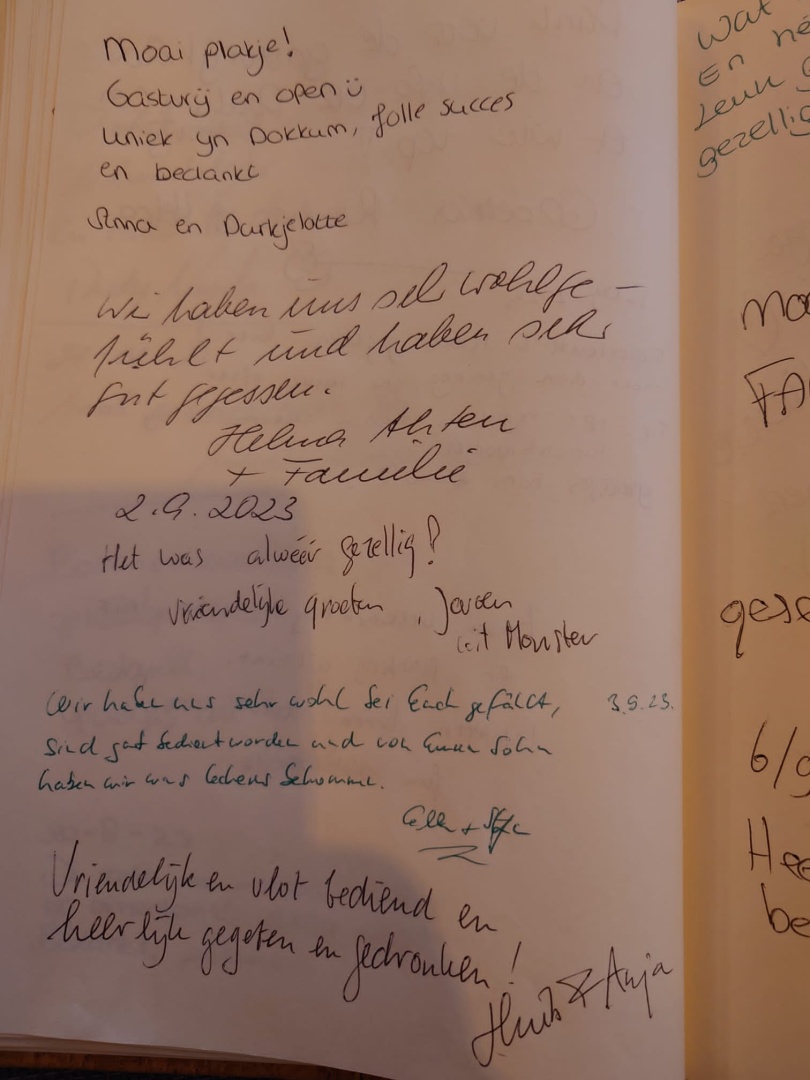 Moai plakje!
Gastvrij en open ü
Uniek yn Dokkum, folle succes
en bedankt
Anna en Durkjelotte
Wir haben uns sehr wohlge-
fühlt und haben sehr
gut gegessen.
Helma Ahten
+ Familie
2.9.2023
Het was alwéér gezellig!
Vriendelijke groeten, Jeroen
uit Monster
Wir haben uns sehr wohl bei Euch gefühlt, 3.9.23.
sind gut bedient worden und von Eurem Sohn
haben wir was leckeres bekommen.
Vriendelijk en vlot bediend en
heerlijk gegeten en gedronken!
Huib & Anja
Wat
En
Leuk
gezellig
Moo
FA
gese
6/9
Hee
be